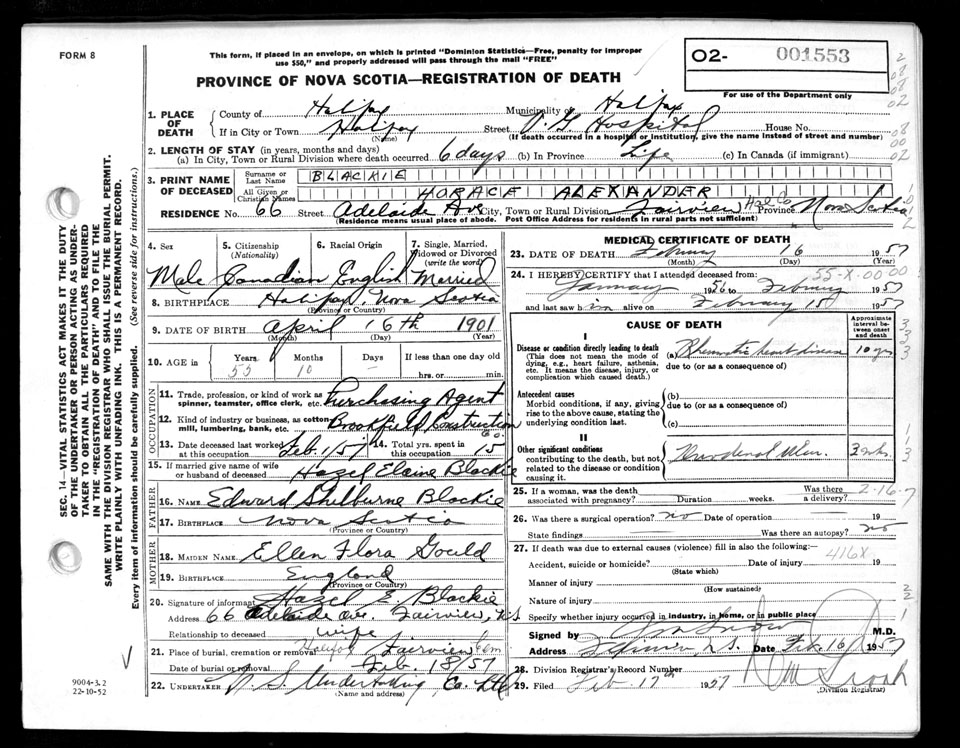 FORM 8
This form, if placed in an envelope, on which is printed "Dominion Statistics—Free, penalty for improper
use $50," and properly addressed will pass through the mail "FREE"
PROVINCE OF NOVA SCOTIA—REGISTRATION OF DEATH
02- 001553
For use of the Department only
1. PLACE OF DEATH
County of Halifax Municipality of Halifax
If in City or Town Halifax Street V. G. Hospital House No.
(Name) (If death occurred in a hospital or institution, give the name instead of street and number)
2. LENGTH OF STAY (in years, months and days)
(a) In City, Town or Rural Division where death occurred 6 days (b) In Province Life (c) In Canada (if immigrant)
3. PRINT NAME OF DECEASED
Surname or Last Name BLACKIE
All Given or Christian Names HORACE ALEXANDER
RESIDENCE No. 66 Street Adelaide Ave City, Town or Rural Division Fairview Hal Co Province Nova Scotia
(Residence means usual place of abode. Post Office Address for residents in rural parts not sufficient)
4. Sex 5. Citizenship (Nationality) 6. Racial Origin 7. Single, Married, Widowed or Divorced (write the word)
Male Canadian English Married
8. BIRTHPLACE Halifax, Nova Scotia
(Province or Country)
9. DATE OF BIRTH April 16th 1901
(Month) (Day) (Year)
10. AGE in Years Months Days If less than one day old
55 10 – hrs. or min.
OCCUPATION
11. Trade, profession, or kind of work as spinner, teamster, office clerk, etc. Purchasing Agent
12. Kind of industry or business, as cotton mill, lumbering, bank, etc. Brookfield Construction Co.
13. Date deceased last worked at this occupation Feb. 1/57 14. Total yrs. spent in this occupation 15
15. If married give name of wife or husband of deceased Hazel Elaine Blackie
FATHER
16. NAME Edward Shelburne Blackie
17. BIRTHPLACE Nova Scotia
MOTHER
18. MAIDEN NAME Ellen Flora Gould
19. BIRTHPLACE England
(Province or Country)
20. Signature of informant Hazel E. Blackie
Address 66 Adelaide Ave. Fairview, N.S.
Relationship to deceased wife
21. Place of burial, cremation or removal Halifax Fairview Cem
Date of burial or removal Feb. 18/57
22. UNDERTAKER N. S. Undertaking Co. Ltd
(Name and address)
MEDICAL CERTIFICATE OF DEATH
23. DATE OF DEATH February 16 1957
(Month) (Day) (Year)
24. I HEREBY CERTIFY that I attended deceased from: 55-X.00 00
January 1956 to February 1957
and last saw him alive on February 15 1957
CAUSE OF DEATH
Approximate interval between onset and death
I
Disease or condition directly leading to death (a) Rheumatic heart disease 10 yrs
(This does not mean the mode of dying, e.g., heart failure, asthenia, etc. It means the disease, injury, or complication which caused death.)
due to (or as a consequence of)
Antecedent causes
Morbid conditions, if any, giving rise to the above cause, stating the underlying condition last.
(b)
due to (or as a consequence of)
(c)
II
Other significant conditions
contributing to the death, but not related to the disease or condition causing it.
Duodenal Ulcer. 3 wks.
25. If a woman, was the death associated with pregnancy? Duration weeks. Was there a delivery?
2-16-7
26. Was there a surgical operation? no Date of operation — 19
State findings Was there an autopsy? no
27. If death was due to external causes (violence) fill in also the following:—
416X
Accident, suicide or homicide? Date of injury 19
(State which)
Manner of injury
(How sustained)
Nature of injury
Specify whether injury occurred in industry, in home, or in public place
Signed by M.D.
Address Fairview, N.S. Date Feb. 16/ 1957
28. Division Registrar's Record Number
29. Filed Feb 17th 1957
(Division Registrar)
SEC. 14—VITAL STATISTICS ACT MAKES IT THE DUTY
OF THE UNDERTAKER OR PERSON ACTING AS UNDER-
TAKER TO OBTAIN ALL THE PARTICULARS REQUIRED
IN THE "REGISTRATION OF DEATH" AND TO FILE THE
SAME WITH THE DIVISION REGISTRAR WHO SHALL ISSUE THE BURIAL PERMIT.
WRITE PLAINLY WITH UNFADING INK. THIS IS A PERMANENT RECORD.
Every item of information should be carefully supplied. (See reverse side for instructions.)
9004-3.2
22-10-52